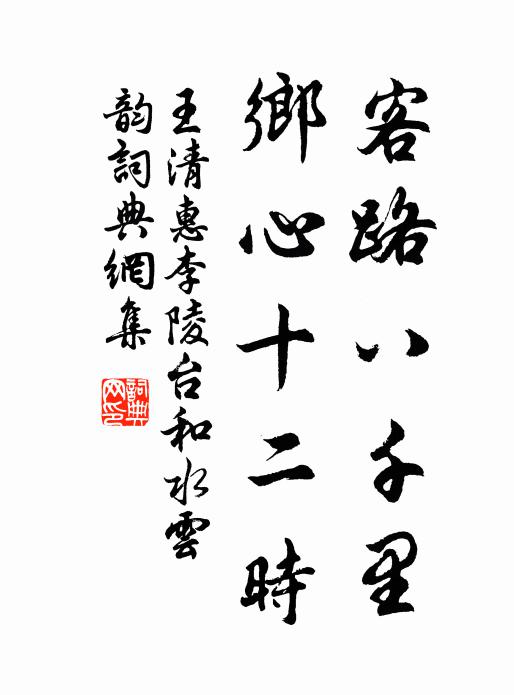 客路八千里
鄉心十二時
王清惠李陵台和水雲
韵詞典網集
詞典網印